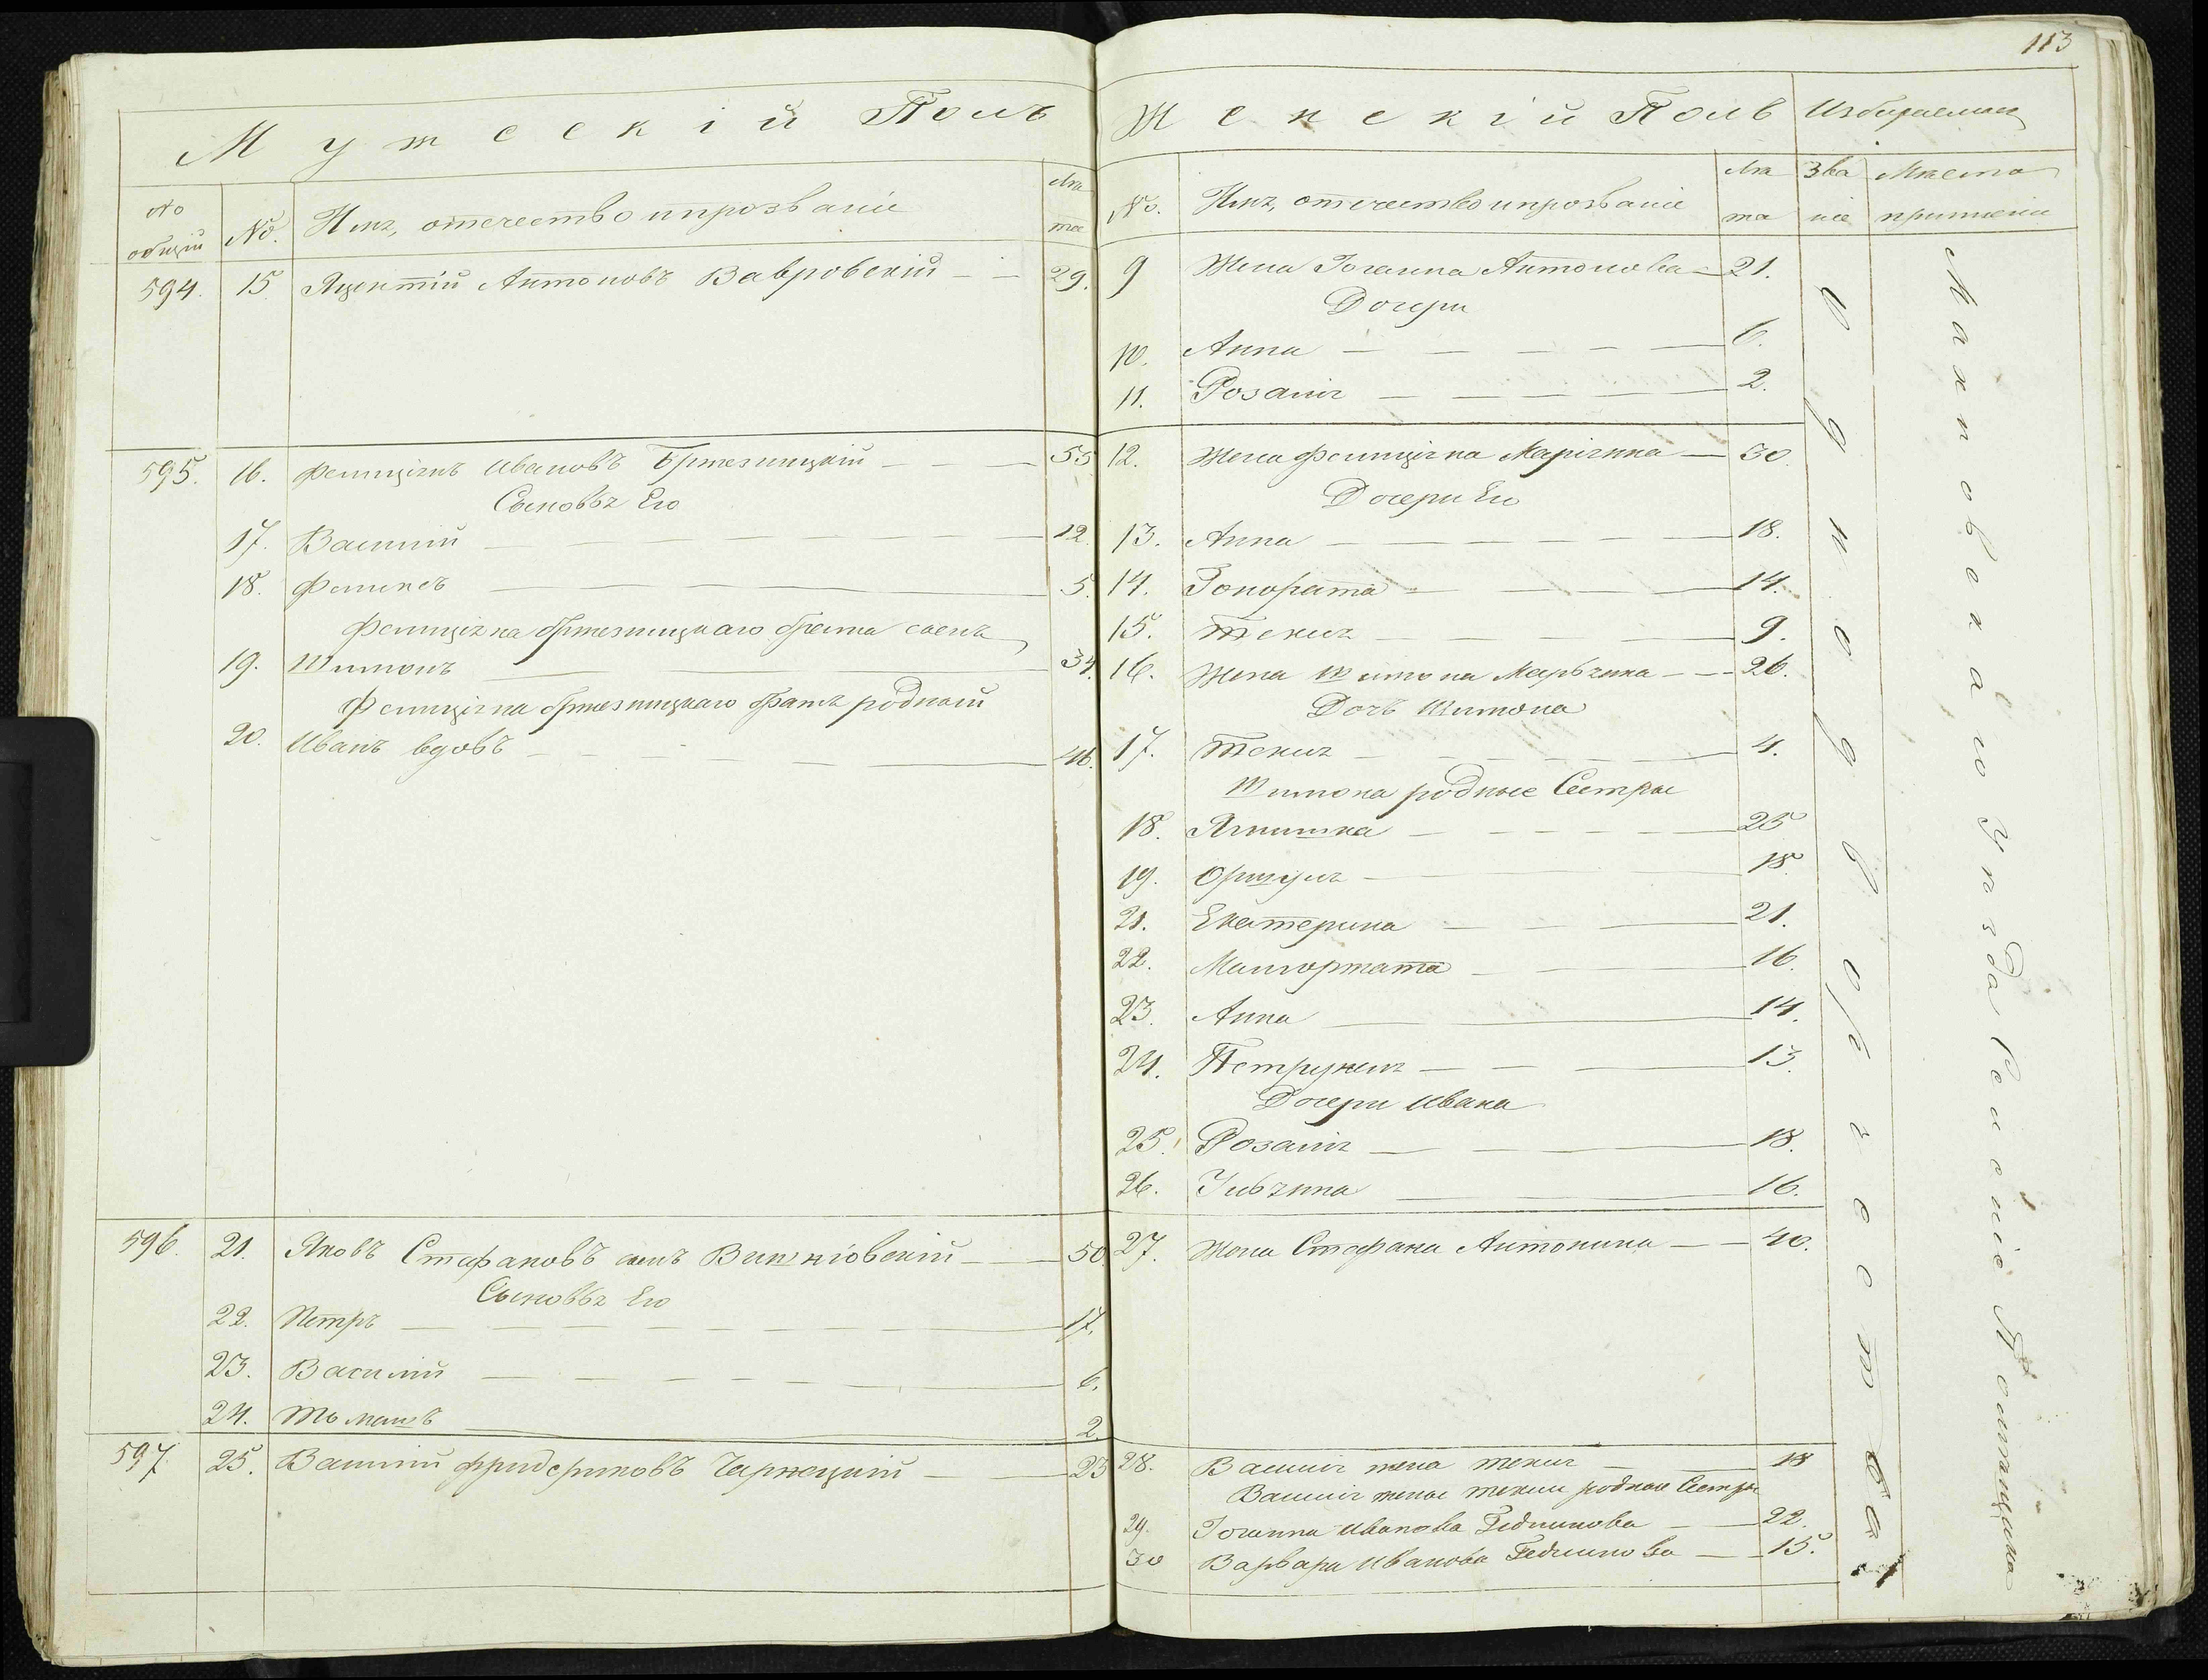 113
Мужескій Полъ
№ общій
№.
Имя, отечество и прозваніе
Лѣта
594. 15. Яцентій Антоновъ Вавровскій 29.
595. 16. Фелиціянъ Ивановъ Бржезицкій 55
Сыновья Его
17. Василій 12.
18. Феликсъ 5.
Фелиціяна бржезицкаго брата сынъ
19. Шимонъ 34.
Фелиціяна бржезицкаго братъ родный
20. Иванъ вдовъ 46.
596. 21. Яковъ Стефановъ сынъ Вишніовскій 50.
Сыновья Его
22. Петръ 17.
23. Василій 6.
24. Томашъ 2.
597. 25. Василій фридериковъ Чарнецкій 23
Женскій Полъ
Избираемыя
№.
Имя, отечество и прозваніе
Лѣта
Званіе
Мѣсто приписки
9 Жена Іоганна Антонова 21.
Дочери
10. Анна 6.
11. Розалія 2.
12. Жена Фелиціяна Маріянна 30.
Дочери Его
13. Анна 18.
14. Гонората 14.
15. Текля 9.
16. Жена Шимона Марьянна 26.
Дочь Шимона
17. Текля 4.
Шимона родные Сестры
18. Ягнишка 25
19. Оршуля 18.
21. Екатерина 21.
22. Малгоржата 16.
23. Анна 14.
24. Петрунеля 13.
Дочери Ивана
25. Розалія 18.
26. Юльянна 16.
27. Жена Стефана Антонина 40.
28. Василія жена текля 18
Василія жены текли родные Сестры
29. Іоганна Иванова 22.
30 Варвара Иванова 15.
однодворчества
Махновскаго уѣзда